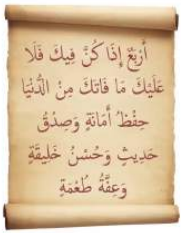 أَرْبَعٌ إِذَا كُنَّ فِيكَ فَلَا
عَلَيْكَ مَا فَاتَكَ مِنَ الدُّنْيَا
حِفْظُ أَمَانَةٍ وَصِدْقُ
حَدِيثٍ وَحُسْنُ خَلِيقَةٍ
وَعِفَّةُ طُعْمَةٍ